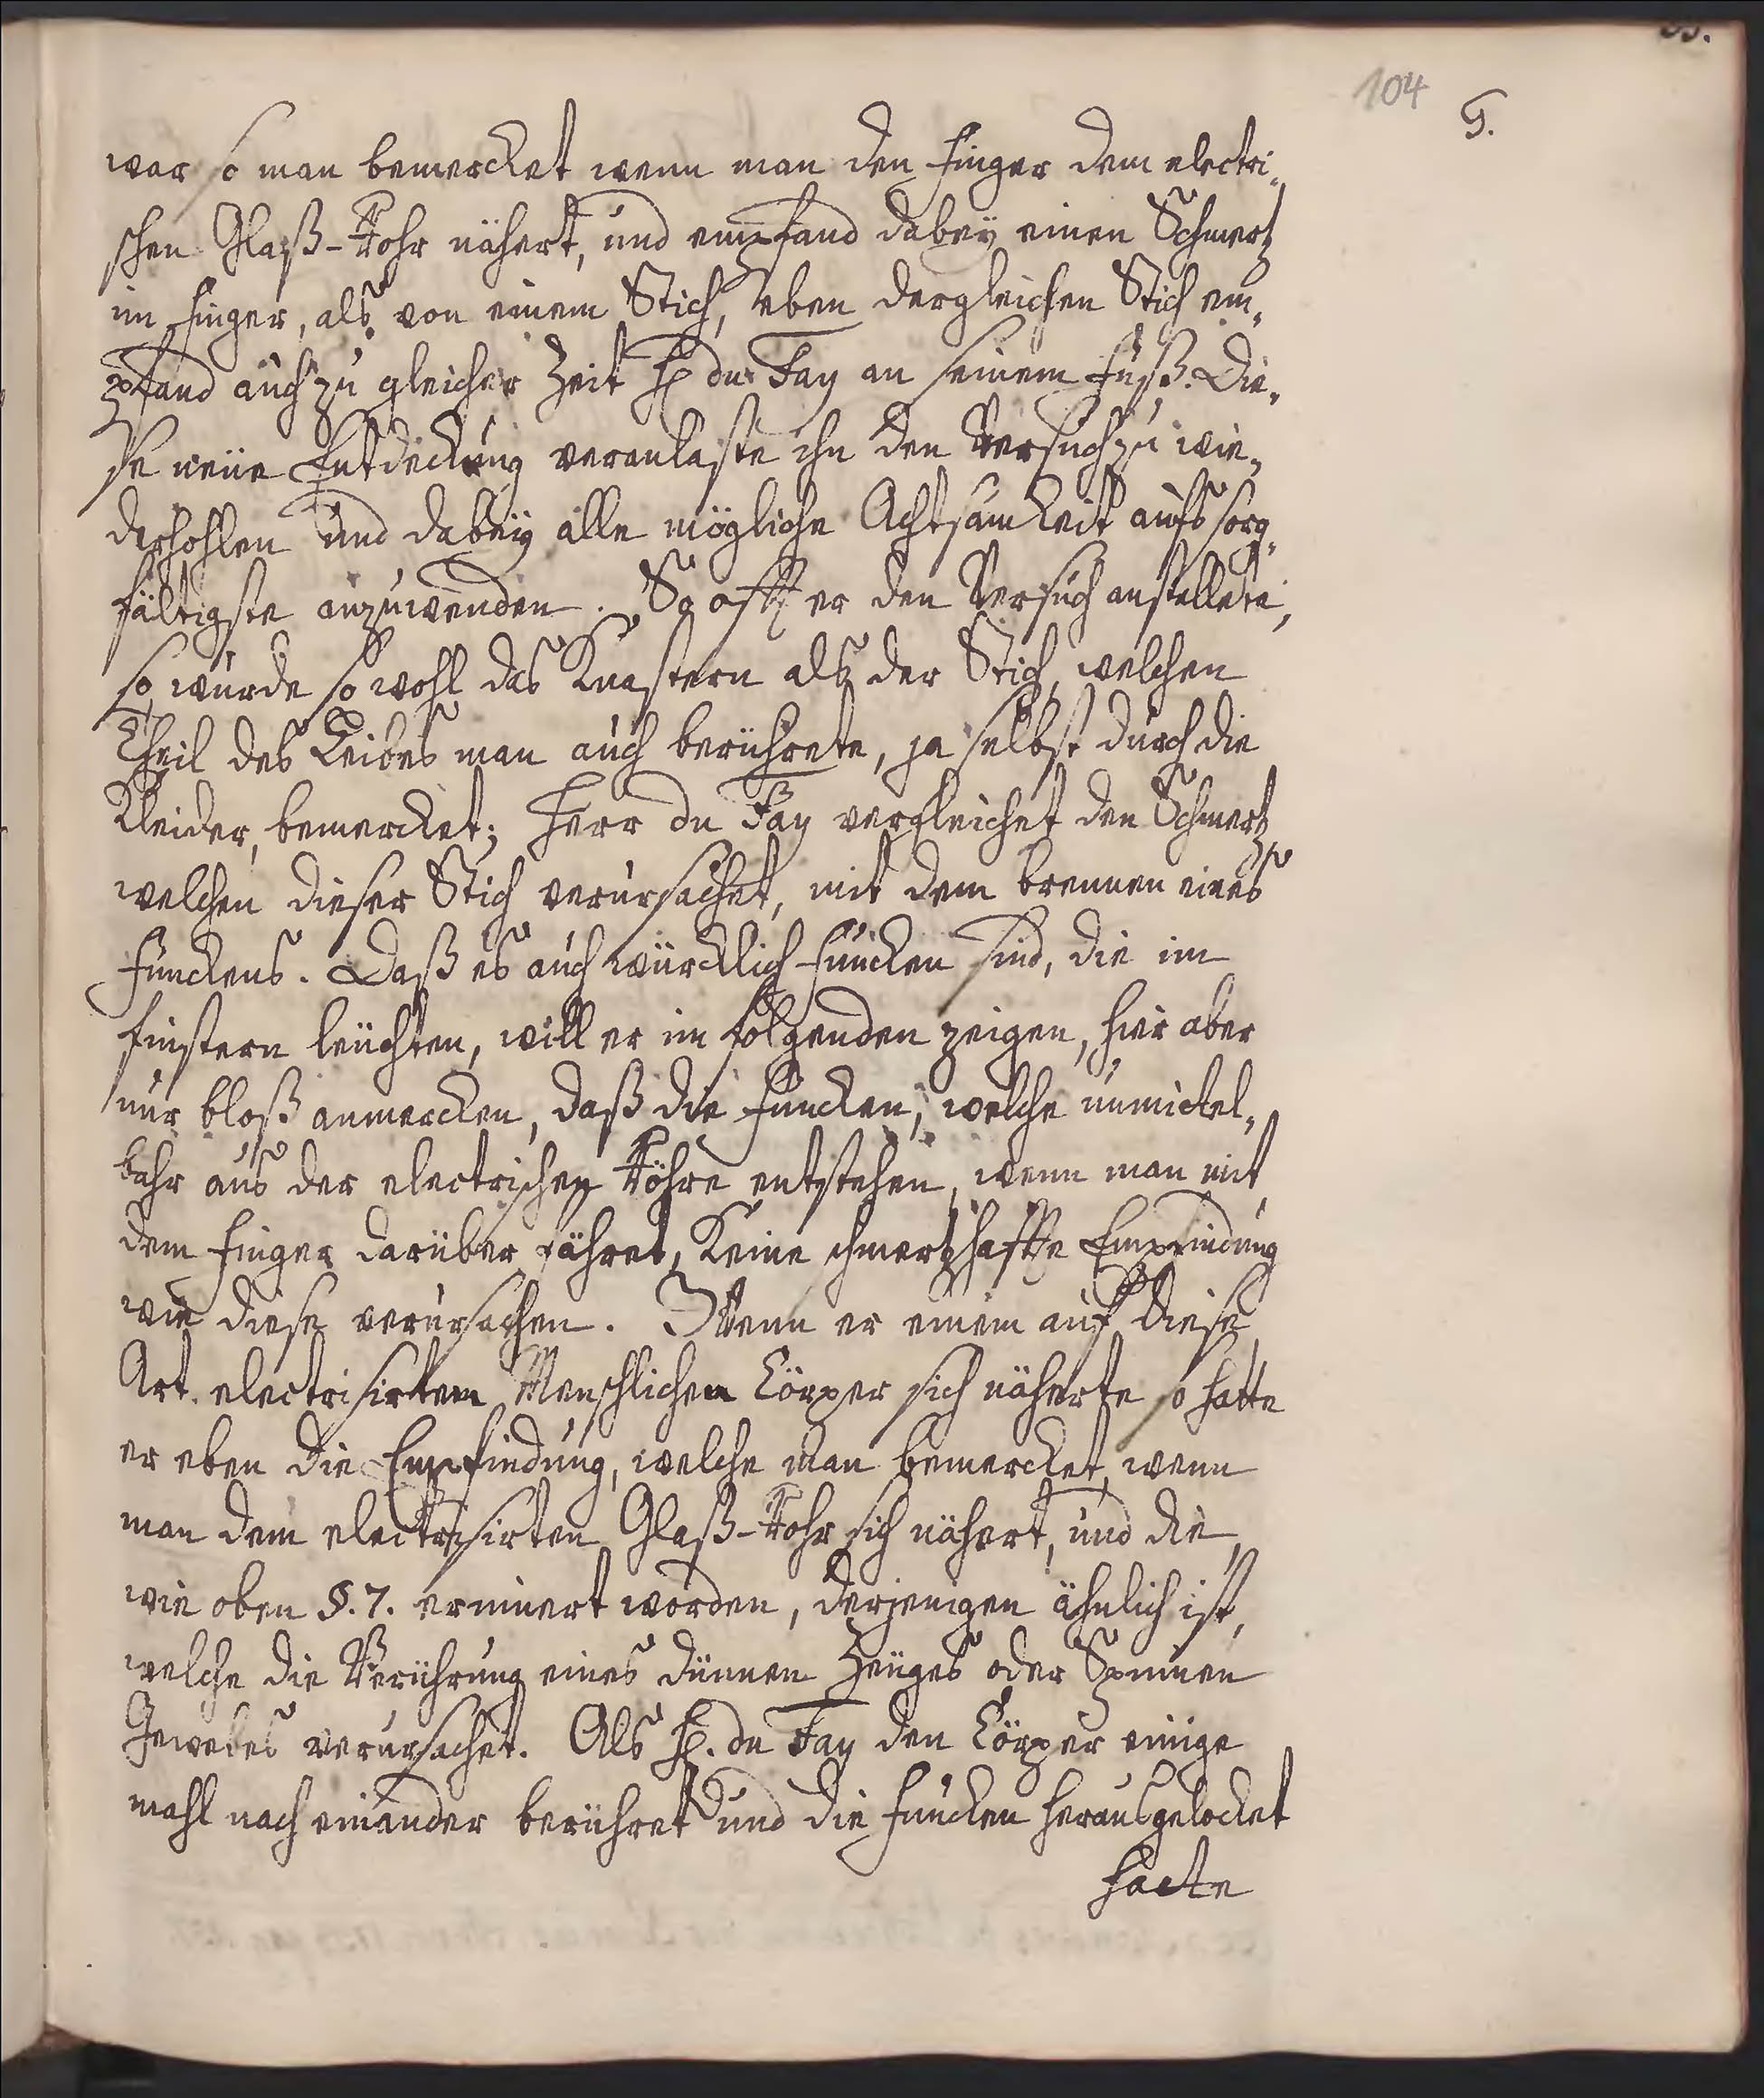 104
G.
war so man bemercket wenn man den Finger dem electri„
schen Glaß-Rohr nähert, und empfand dabeÿ einen Schmertz
im Finger, als von einem Stich, eben dergleichen Stich em„
pfand auch zu gleicher Zeit H. du Fay an seinem Fuß. Die„
se neue Entdeckung veranlaste ihn den Versuch zu wie„
derhohlen und dabeÿ alle mögliche Achtsamkeit aufs sorg„
fältigste anzuwenden. So offt er den Versuch anstellete,
so wurde so wohl das Knastern als der Stich, welchen
Theil des Leibes man auch berührete, ja selbst durch die
Kleider, bemercket; Herr du Fay vergleichet den Schmertz
welchen dieser Stich verursachet, mit dem brennen eines
Funckens. Daß es auch würcklich Funcken sind, die im
finstern leuchten, will er im folgenden zeigen, hier aber
nur bloß anmercken, daß die Funcken, welche unmittel„
bahr aus der electrischen Röhre entstehen, wenn man mit
dem Finger darüber fähret, keine schmertzhaffte Empfindung
wie diese verursachen. Wenn er einem auf diese
Art electrisirtem Menschlichen Cörper sich näherte so hatte
er eben die Empfindung, welche man bemercket, wenn
man dem electrisirten Glaß-Rohr sich nähert, und die,
wie oben §. 7. erinnert worden, derjenigen ähnlich ist,
welche die Berührung eines dünnen Zeuges oder Spinnen
Gewebes verursachet. Als H. du Fay den Cörper einige
mahl nach einander berühret und die Funcken herausgelocket
hatte